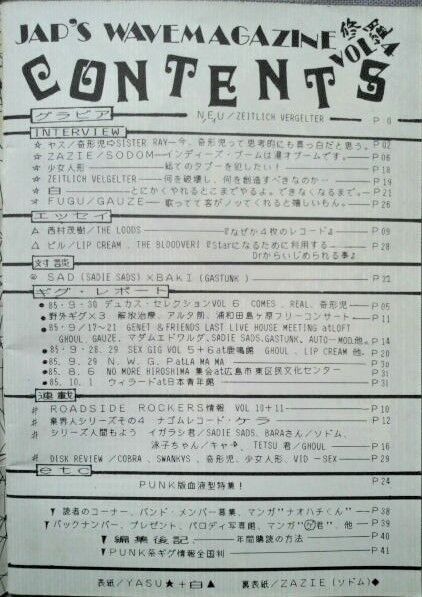 JAP'S WAVEMAGAZINE
VOL.4
CONTENTS
グラビア N,E,U/ZEITLICH VERGELTER P 0
INTERVIEW
☆ ヤス/奇形児ゆSISTER RAY—今、奇形児って思考的にも真っ白だと思う。 P 02
☆ ZAZIE/SODOM—インディーズ・ブームは漫才ブームです。 P 06
☆ 少女人形—総てのタブーを犯したい! P 18
☆ ZEITLICH VELGELTER—何を破壊し、何を創造すべきなのか… P 19
☆ 白—とにかくやれるとこまでやるよ。できなくなるまで。 P 21
☆ FUGU/GAUZE—歌ってて客がノッてくれると嬉しいもん。 P 26
エッセイ
△ 西村茂樹/THE LOODS 『なぜか4枚のレコード』 P 09
△ ピル/LIP CREAM、THE BLOODVER! 『Starになるために利用する—Drからいじめられる事』 P 28
対談
SAD (SADIE SADS)×BAKI (GASTUNK) P 22
ギグ・レポート
●85・9・30 デュカス・セレクションVOL 6 COMES、REAL、奇形児 P 05
●野外ギグ×3 解放治療、アルタ前、浦和田島ヶ原フリーコンサート P 11
●85・9/17~21 GENET &FRIENDS LAST LIVE HOUSE MEETING atLOFT
GHOUL、GAUZE、マダムエドワルダ、SADIE SADS,GASTUNK、AUTO-MOD,他 P 14
●85・9・28、29 SEX GIG VOL 5+6at鹿鳴館 GHOUL、LIP CREAM,他 P 20
●85、9、29 N. W. G. PatLA MAMA P 30
●85、8、6 NO MORE HIROSHIMA 集会at広島市東区民文化センター P 31
●85、10、1 ウィラードat日本青年館 P 31
連載
# ROADSIDE ROCKERS情報 VOL 10+11 P 10
# 業界人シリーズその4 ナゴムレコード・ケラ P 12
# シリーズ人間もよう イガラシ君/SADIE SADS、BARAさん/ソドム、
泳子ちゃん/キャ、TETSU 君/GHOUL P 16
# DISK REVIEW /COBRA、SWANKYS、奇形児、少女人形、VID-SEX P 29
etc
PUNK版血液型特集! P 24
▼ 読者のコーナー、バンド・メンバー募集、マンガ"ナオハチくん" P 38
▼バックナンバー、プレゼント、パロディ写真館、マンガ"君"、他 P 39
▼ 編集後記、—年間購読の方法 P 40
▼PUNK系ギグ情報全国判 P 41
表紙/YASU★+白▲ 裏表紙/ZAZIE(ソドム)◆